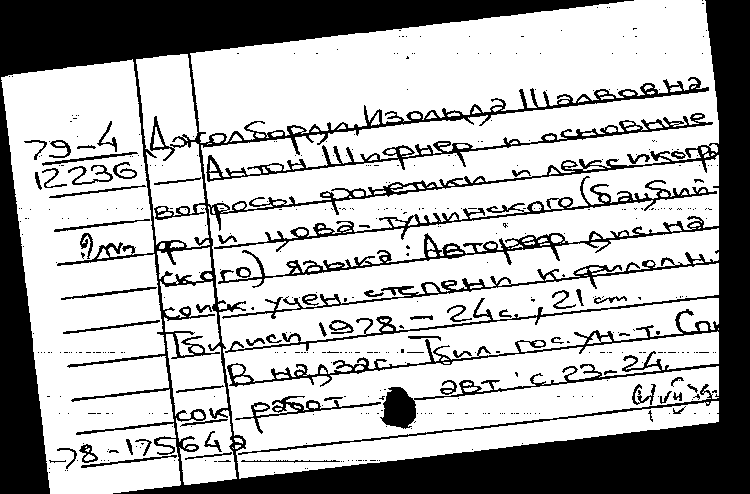 79-4
12236
Джолборди, Изольда Шалвовна
Антон Шифнер и основные
вопросы фонетики и лексикогра
фии цова-тушинского (бацбий-
ского) языка : Автореф дис. на
соиск. учен. степени к. филол. н. :
Тбилиси, 1978. - 24 с. ; 21 cm.
В надзаг.: Тбил. гос. ун-т. Спи
сок работ авт.: с. 23-24.
78-175642